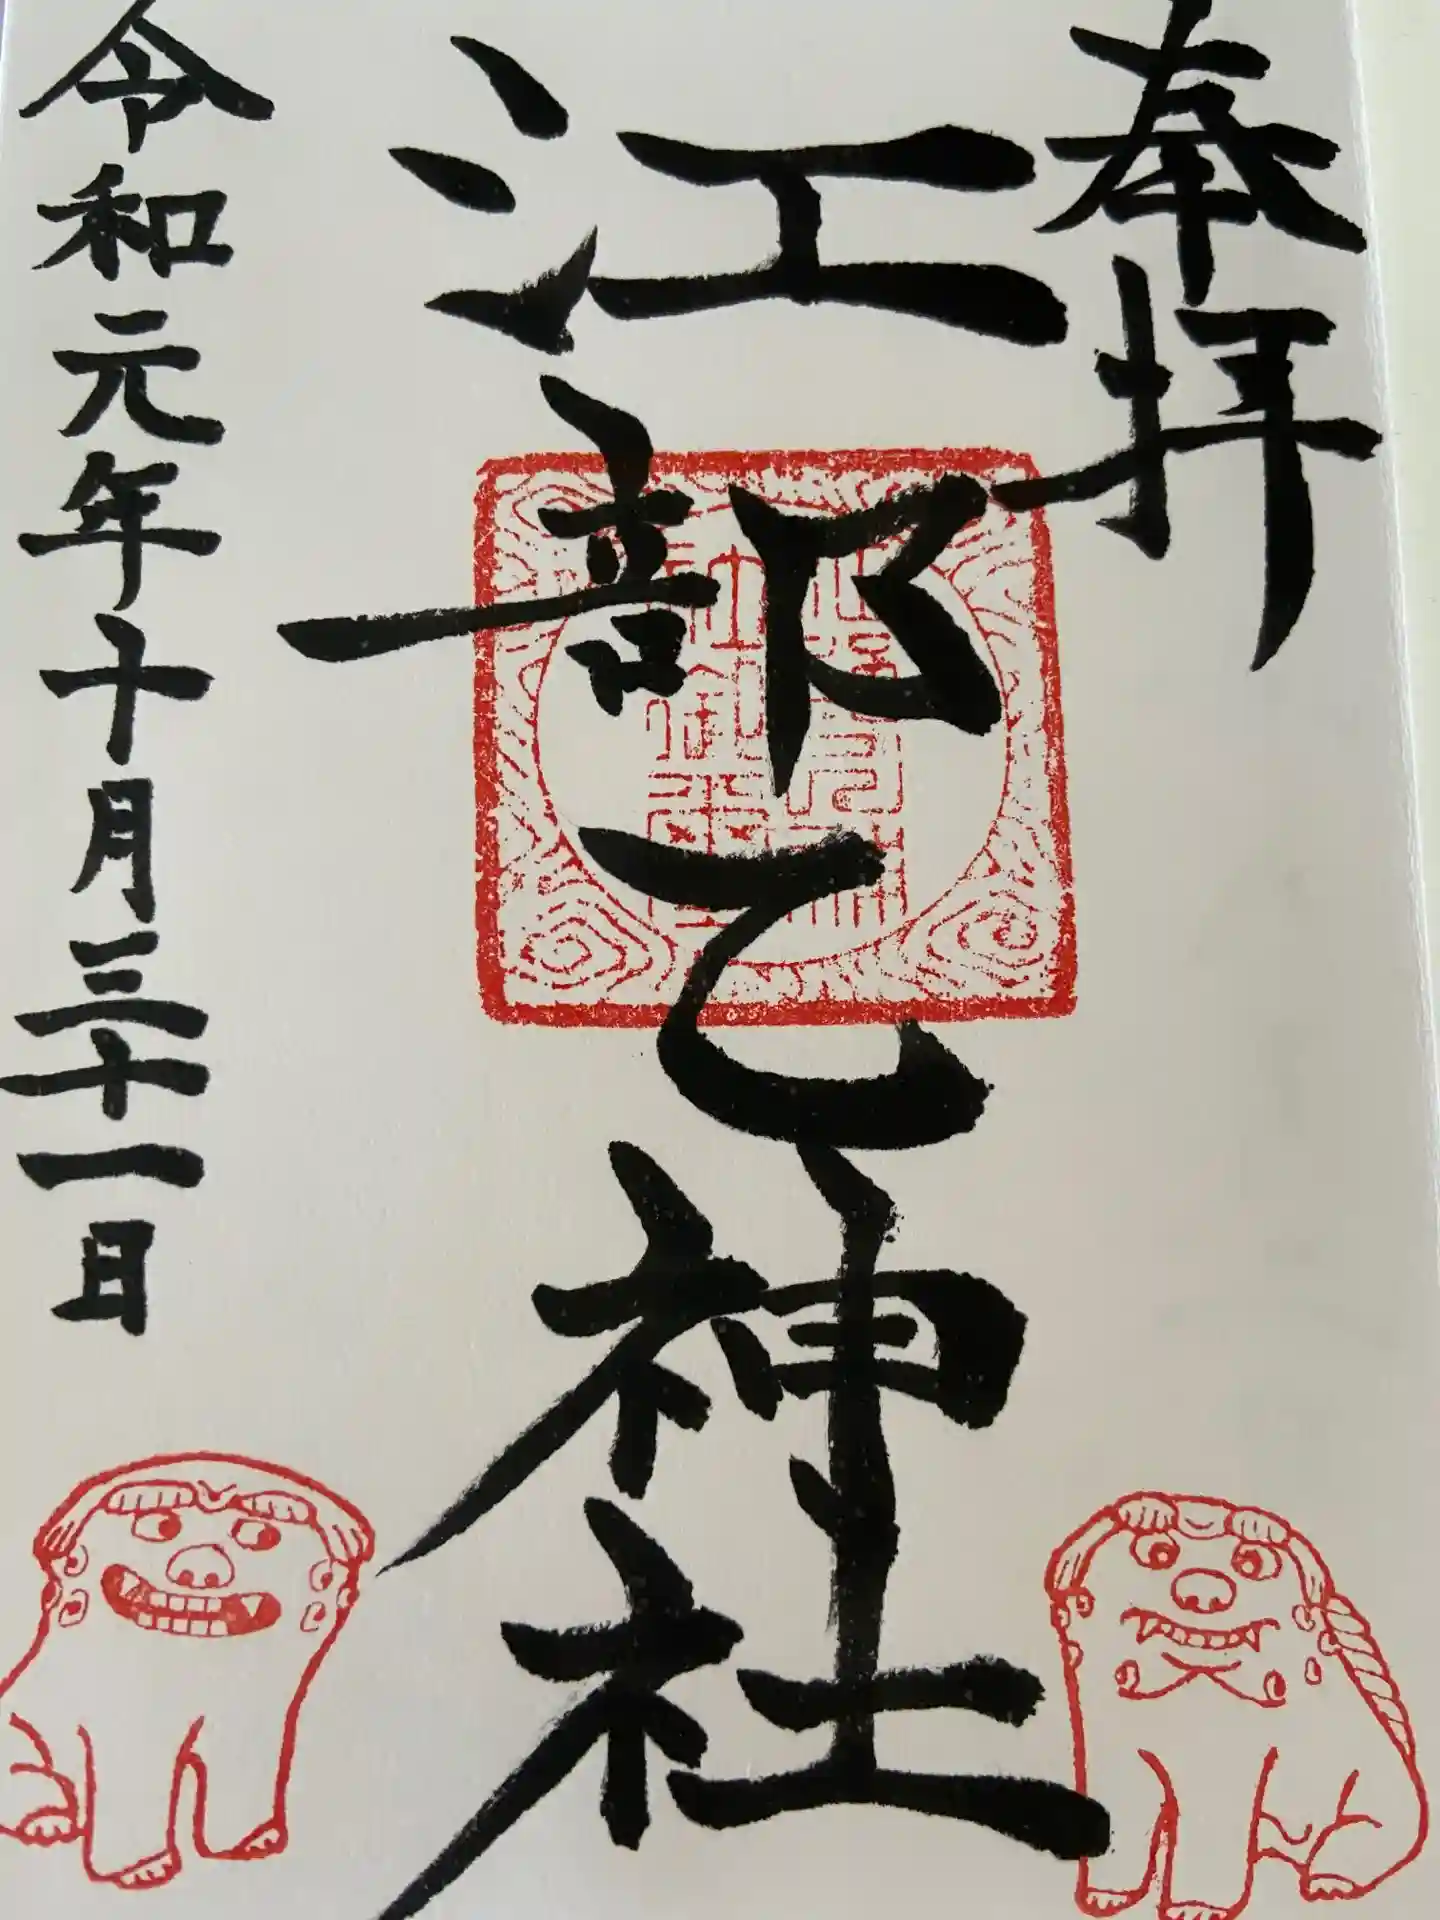 奉拝
江部乙神社
令和元年十月三十一日